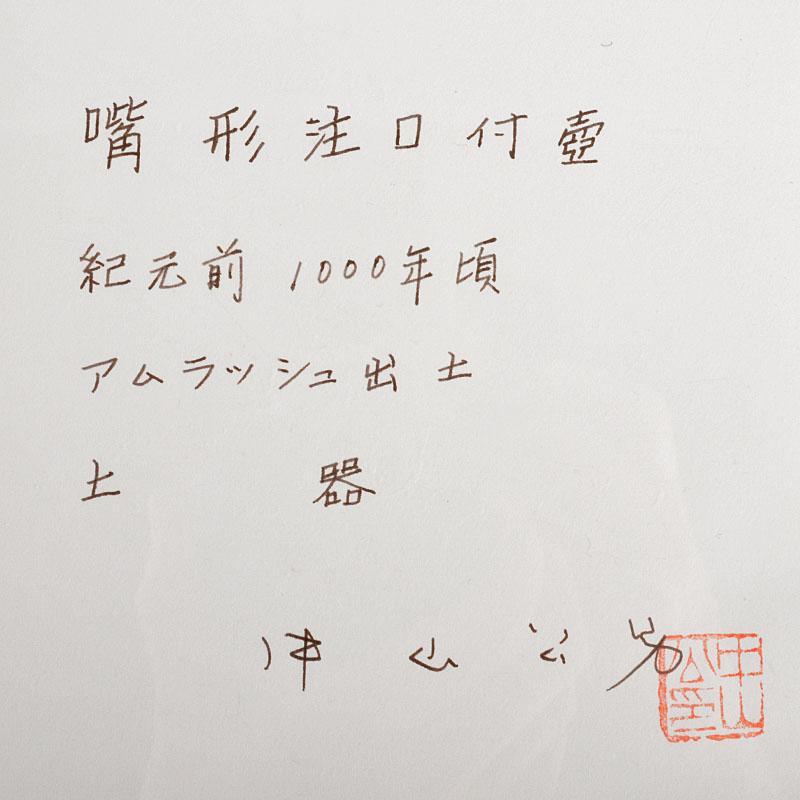 嘴形注口付壺
紀元前1000年頃
アムラッシュ出土
土器
中山公男